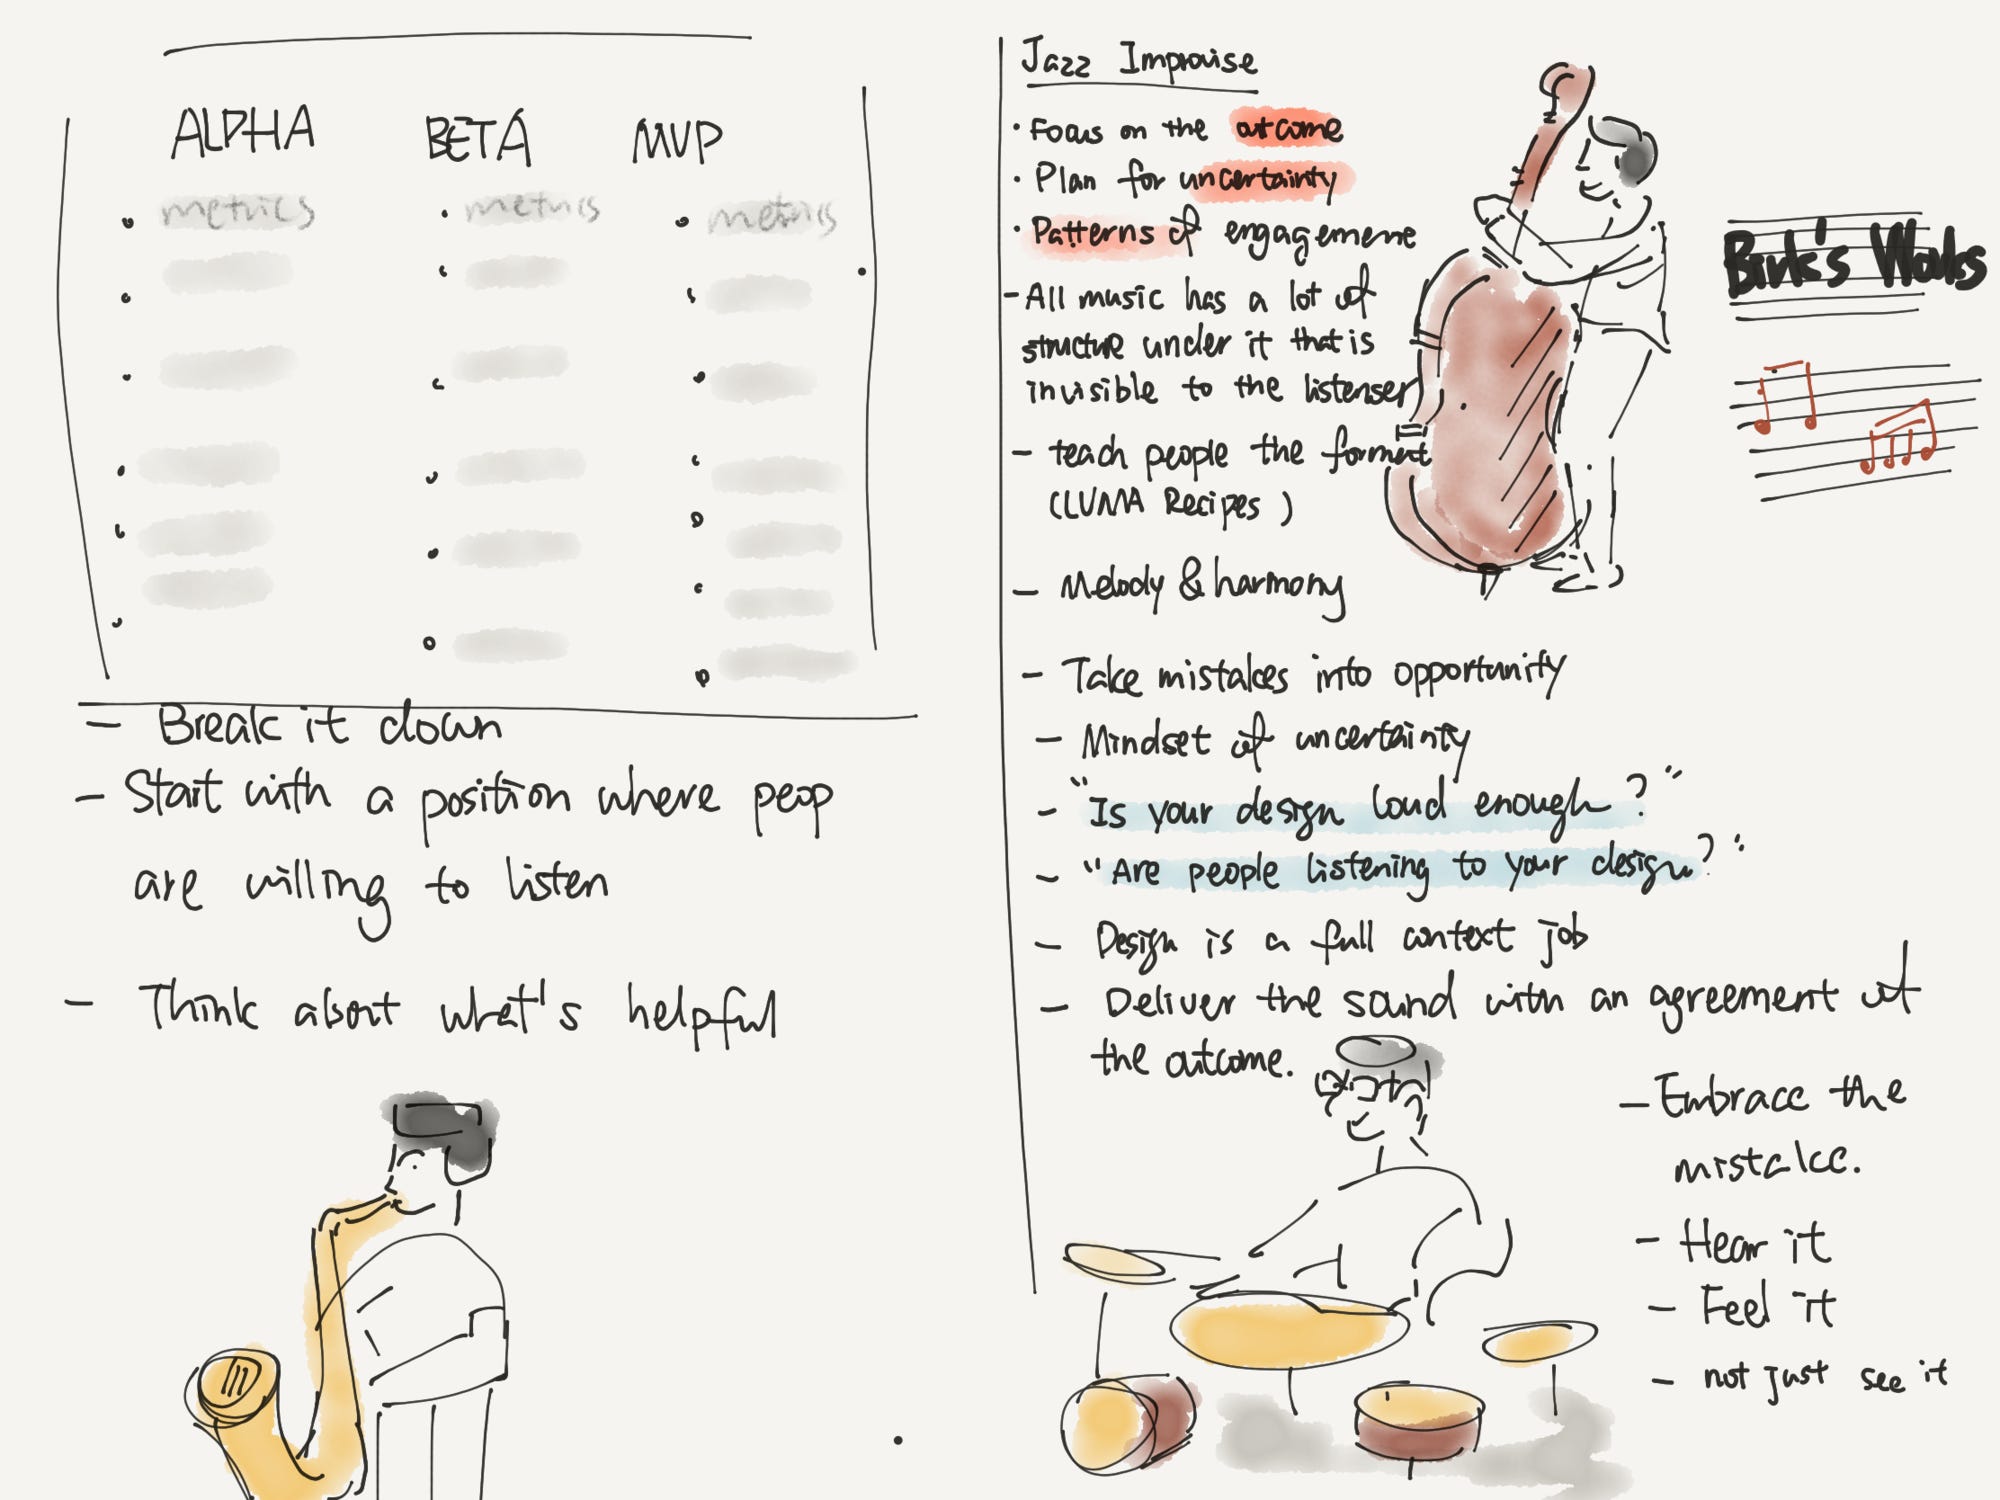 ALPHA BETA MVP
metrics metrics metrics
= Break it down
- Start with a position where peop
are willing to listen
- Think about what's helpful
Jazz Improvise
• Focus on the outcome
• Plan for uncertainty
• Patterns of engagement
- All music has a lot of
structure under it that is
invisible to the listenser
- teach people the format
(LUMA Recipes)
- Melody & harmony
- Take mistakes into opportunity
- Mindset of uncertainty
- "Is your design loud enough?"
- "Are people listening to your design?"
- Design is a full context job
- Deliver the sound with an agreement of
the outcome.
Birk's Works
- Embrace the
mistake.
- Hear it
- Feel it
- not just see it